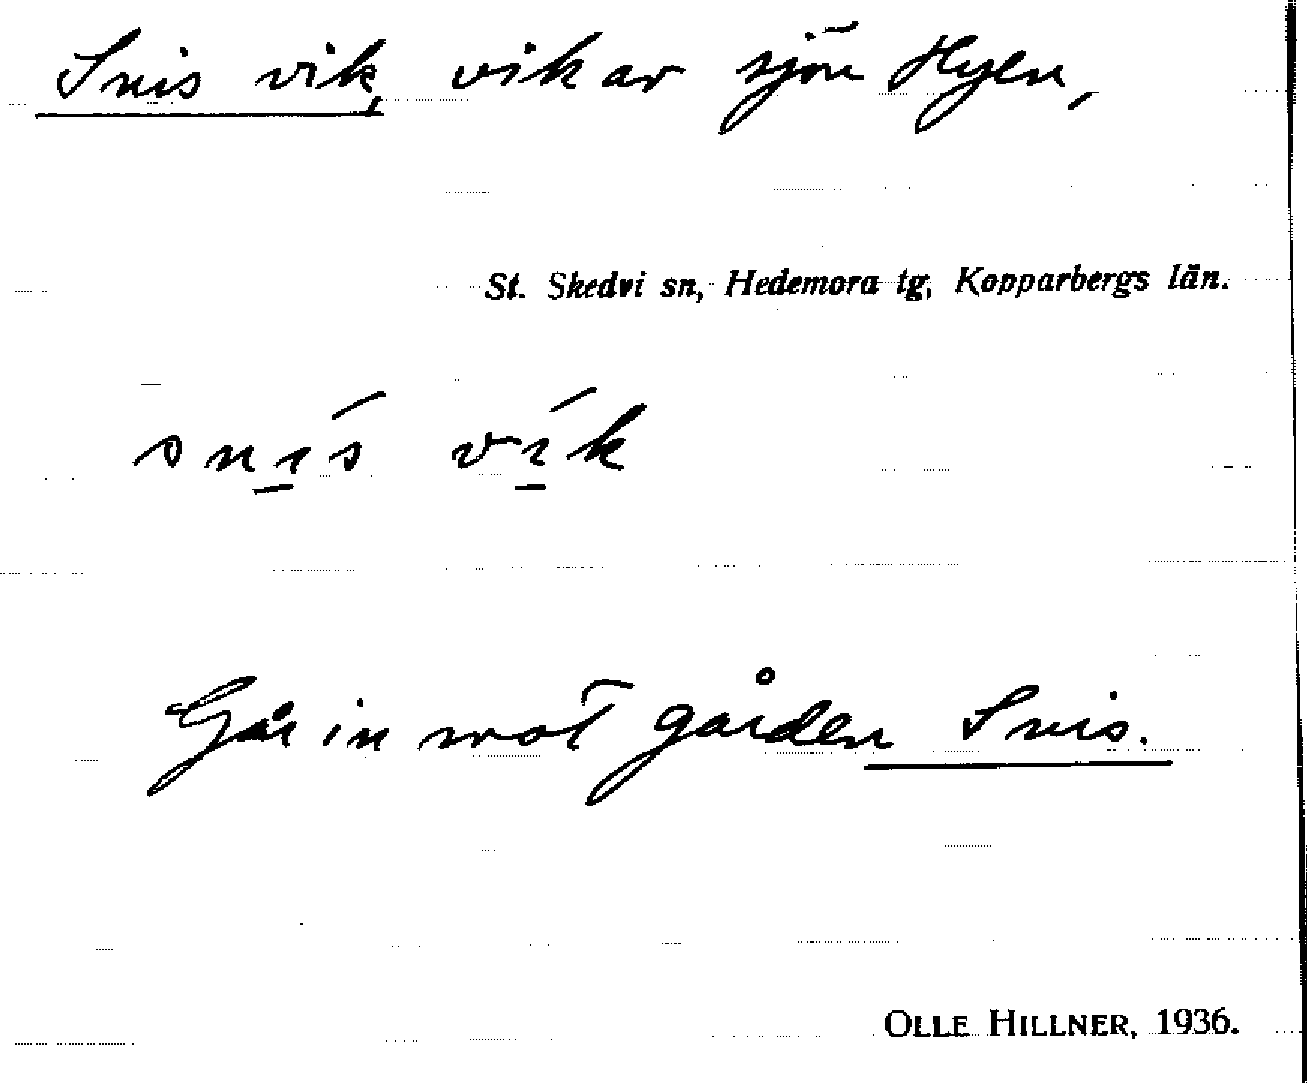 Snis vik, vik av sjön Hyen,
St. Skedvi sn, Hedemora tg, Kopparbergs län.
snı̱ś vı̱́k
Går in mot gården Snis.
OLLE HILLNER, 1936.